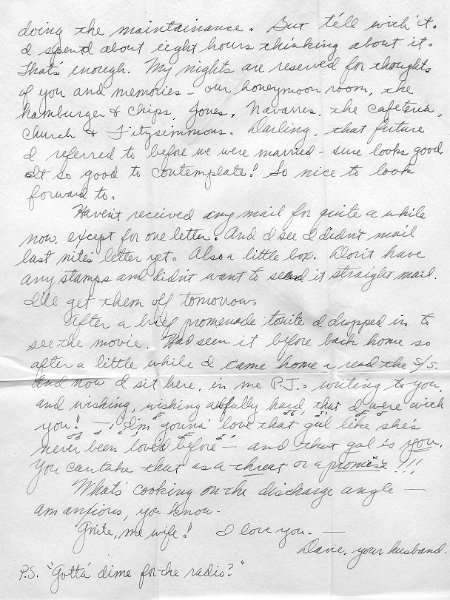 doing the maintainance. But t'ell with it.
I spend about eight hours thinking about it.
That's enough. My nights are reserved for thoughts
of you and memories - our honeymoon room, the
hamburger & chips, Jones, Navarres, the cafeteria,
Church & Fitzsimmons. Darling, that future
I referred to before we were married - sure looks good.
It so good to contemplate! So nice to look
forward to.
Haven't received any mail for quite a while
now, except for one letter. And I see I didn't mail
last nite's letter yet. Also a little box. Don't have
any stamps and didn't want to send it straight mail.
I'll get them off tomorrow.
After a brief promenade tonite I dropped in to
see the movie. Had seen it before back home so
after a little while I came home & read the S/S.
And now I sit here, in me P.J.s writing to you,
and wishing, wishing awfully hard that I were with
you! — I'm gonna' love that gal like she's
never been loved before" - and that gal is you.
You can take that as a threat or a promise!!!
What's cooking on the discharge angle —
am anxious, you know.
'Nite, me wife! I love you. —
Dave, your husband.
P.S. "Gotta' dime for the radio?"